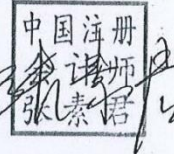 中国注册
会计师
张素君